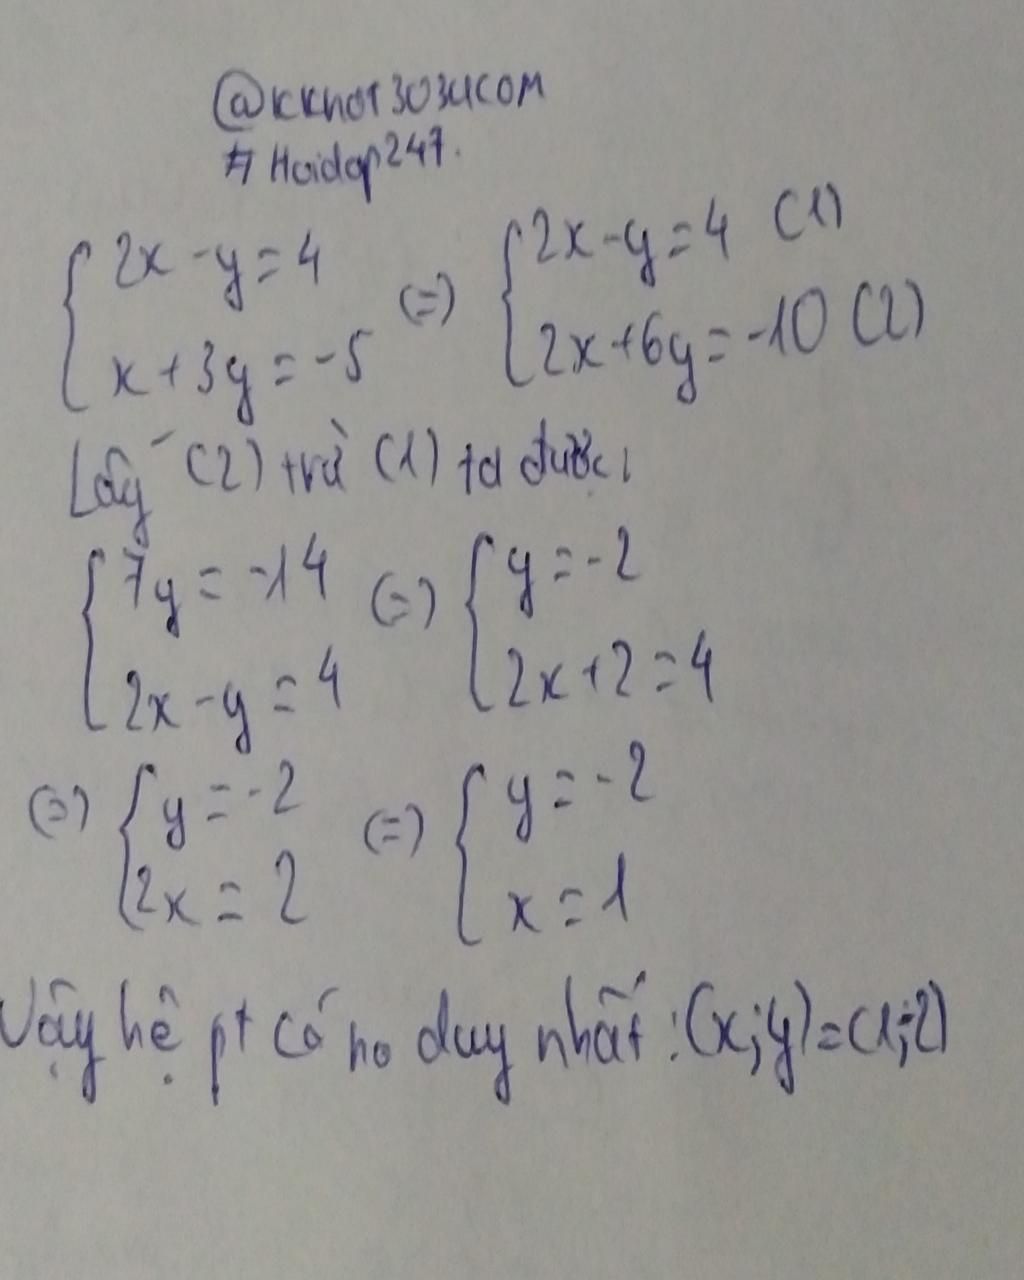 @kkhot3034com
#Hoidap247.
{2x - y = 4 (=) {2x - y = 4 (1)
{x + 3y = -5 {2x + 6y = -10 (2)
Lấy (2) trừ (1) ta được:
{7y = -14 (=) {y = -2
{2x - y = 4 {2x + 2 = 4
(=) {y = -2 (=) {y = -2
{2x = 2 {x = 1
Vậy hệ pt có no duy nhất: (x;y) = (1;-2)